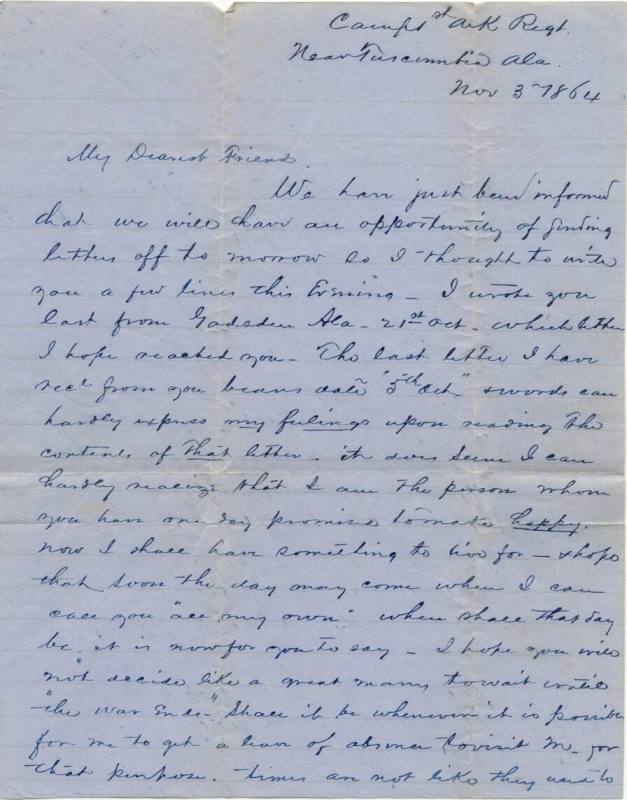 Camp 1st Ark Regt.
Near Tuscumbia Ala.
Nov 3 1864
My Dearest Friend
We have just been informed
that we will have an opportunity of sending
letters off to morrow so I thought to write
you a few lines this Evening - I wrote you
last from Gadsden Ala - 21st Oct - which letter
I hope reached you - The last letter I have
recd from you bears date "5th Oct" & words can
hardly express my feelings upon reading the
contents of that letter - it does seem I can
hardly realize that I am the person whom
you have one day promise to make happy.
now I shall have something to live for - & hope
that soon the day may come when I can
call you "all my own" when shall that day
be it is now for you to say - I hope you will
"not" decide like a great many to wait until
"the War Ends" - Shall it be whenever it is possible
for me to get a leave of absence to visit M- for
that purpose. times are not like they used to